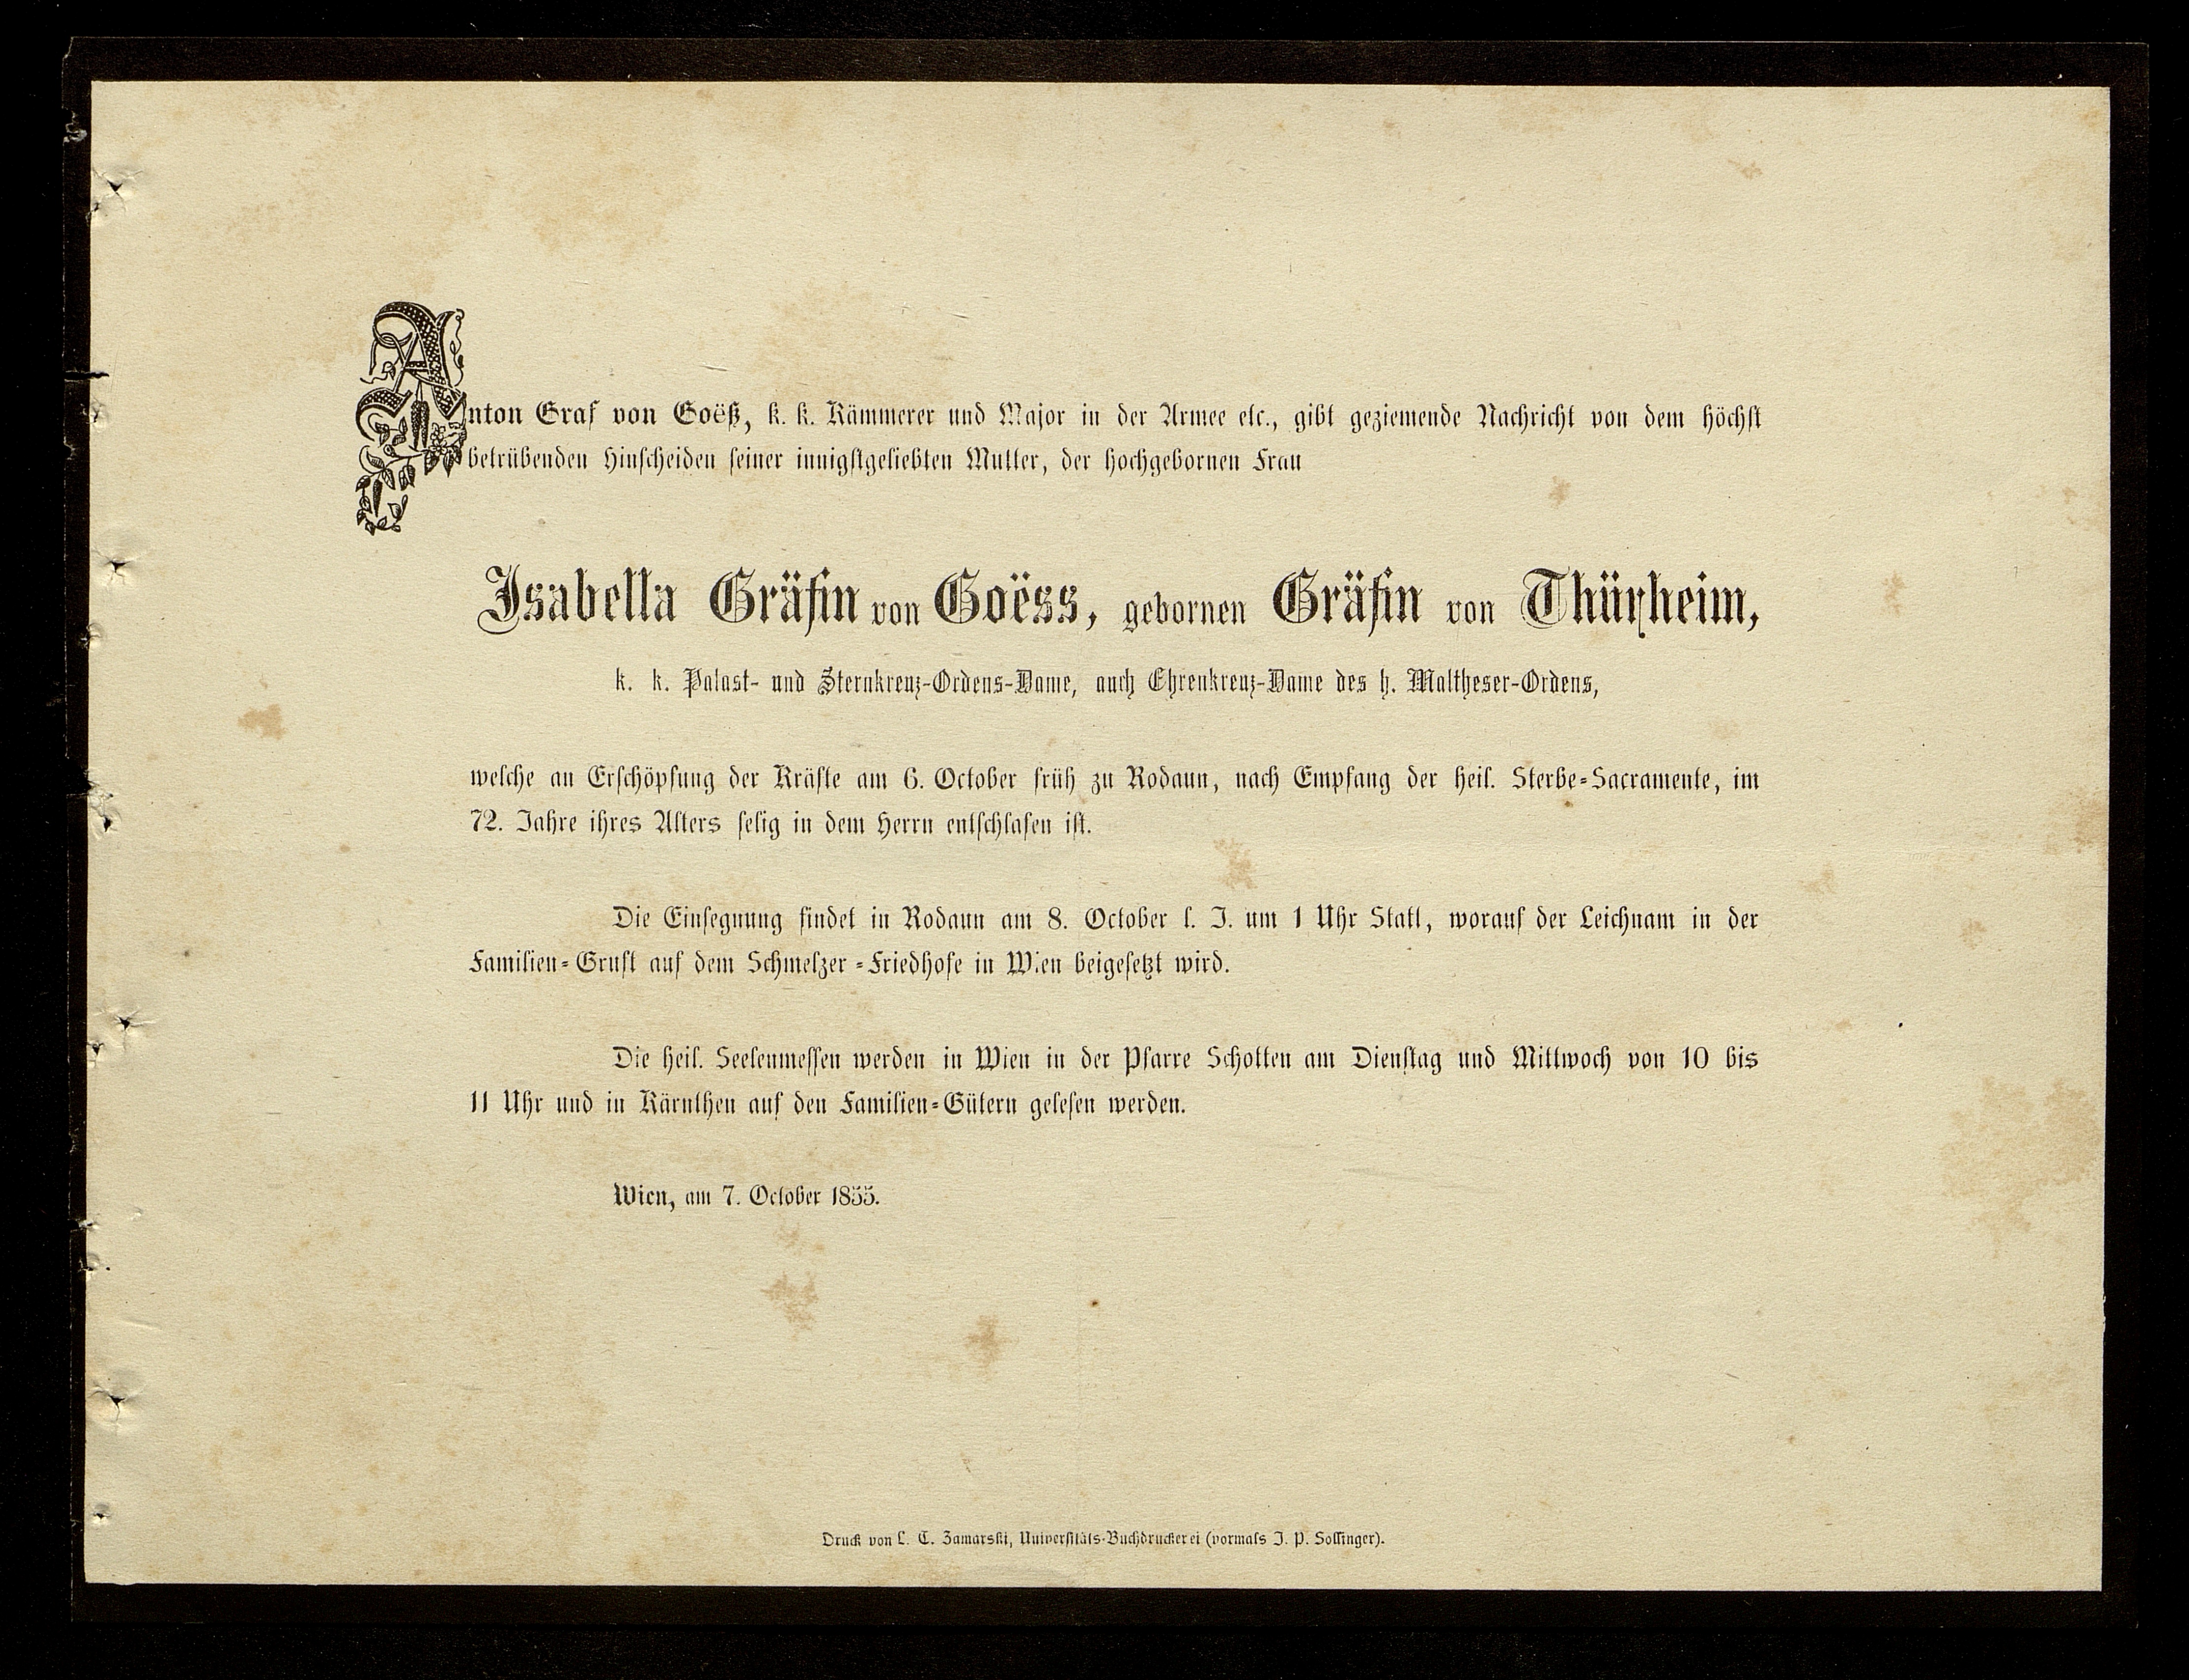 Anton Graf von Goëß, k. k. Kämmerer und Major in der Armee etc., gibt geziemende Nachricht von dem höchst
betrübenden Hinscheiden seiner innigstgeliebten Mutter, der hochgebornen Frau
Isabella Gräfin von Goëss, gebornen Gräfin von Thürheim,
k. k. Palast- und Sternkreuz-Ordens-Dame, auch Ehrenkreuz-Dame des h. Maltheser-Ordens,
welche an Erschöpfung der Kräfte am 6. October früh zu Rodaun, nach Empfang der heil. Sterbe-Sacramente, im
72. Jahre ihres Alters selig in dem Herrn entschlafen ist.
Die Einsegnung findet in Rodaun am 8. October l. J. um 1 Uhr Statt, worauf der Leichnam in der
Familien-Gruft auf dem Schmelzer-Friedhofe in Wien beigesetzt wird.
Die heil. Seelenmessen werden in Wien in der Pfarre Schotten am Dienstag und Mittwoch von 10 bis
11 Uhr und in Kärnthen auf den Familien-Gütern gelesen werden.
Wien, am 7. October 1855.
Druck von L. C. Zamarski, Universitäts-Buchdruckerei (vormals J. P. Sollinger).